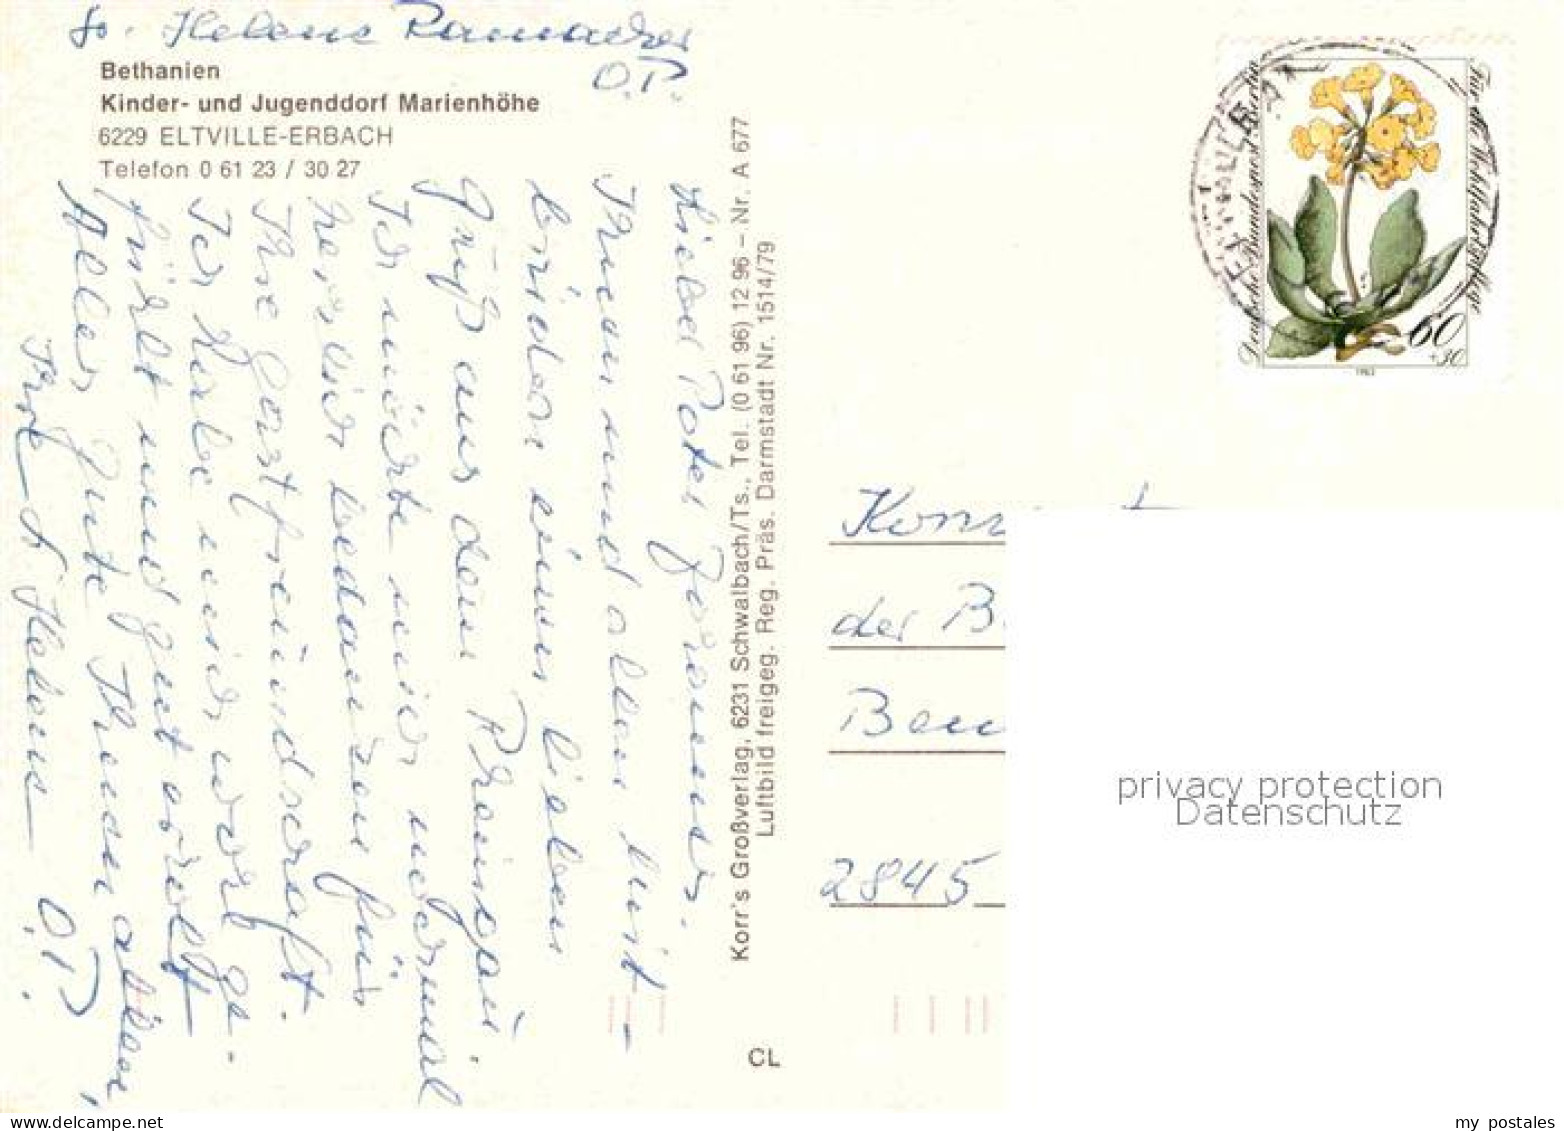 Sr. Helene Ramacher
O.P.
Bethanien
Kinder- und Jugenddorf Marienhöhe
6229 ELTVILLE-ERBACH
Telefon 0 61 23 / 30 27
Lieber Pater
Ihnen und allen Mit-
brüdern einen lieben
Gruß aus dem Rheingau.
Ich möchte mich nochmal
herzlich bedanken für
Ihre Gastfreundschaft.
Ich habe mich wohl ge-
fühlt und gut erholt
Alles Gute Ihnen allen,
Ihre Sr. Helene
O.P.
Korr's Großverlag, 6231 Schwalbach/Ts., Tel. (0 61 96) 12 96 – Nr. A 677
Luftbild freigeg. Reg. Präs. Darmstadt Nr. 1514/79
CL
Deutsche Bundespost Berlin
Für die Wohlfahrtspflege
60
+30
1983
ELTVILLE
der B
2845
privacy protection
Datenschutz
www.delcampe.net
my postales